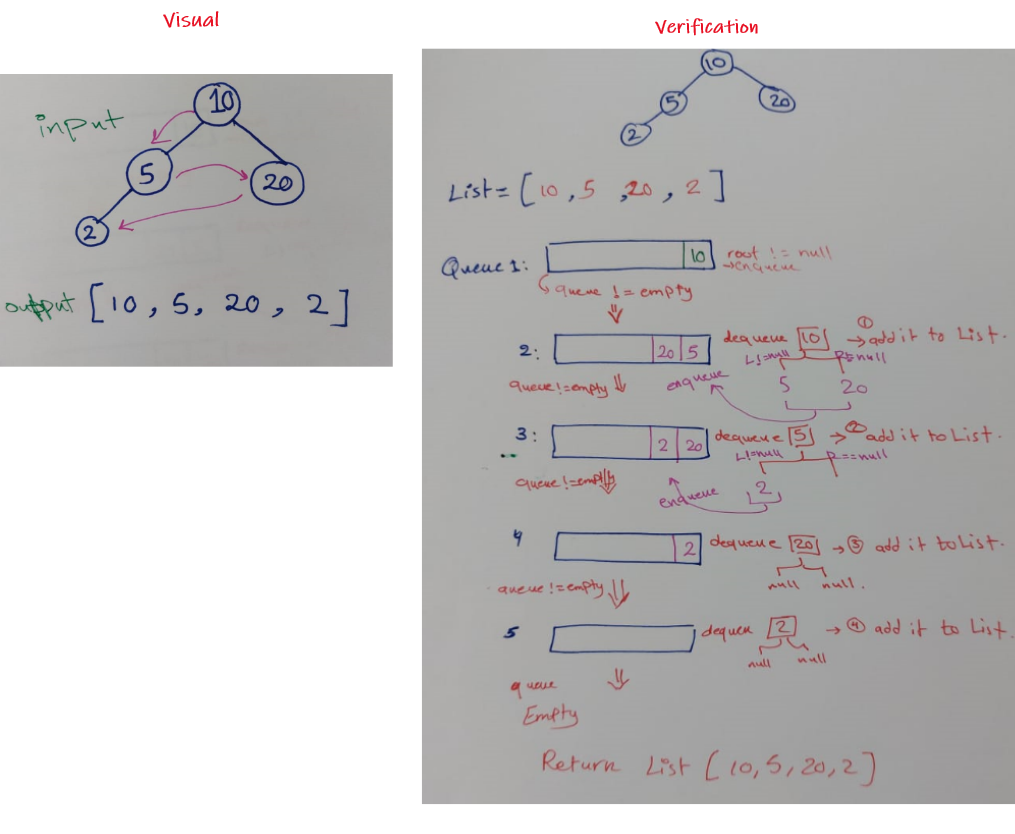 Visual
input
10
5
20
2
output [10, 5, 20, 2]
Verification
10
5
20
2
List= [10, 5, 20, 2]
Queue 1: 10 root != null
→enqueue
queue != empty
2: 20 5 dequeue 10 → ① add it to List.
L!=null R!=null
queue!=empty enqueue 5 20
3: 2 20 dequeue 5 → ② add it to List.
L!=null R==null
queue!=empty enqueue 2
4 2 dequeue 20 → ③ add it to List.
null null.
queue!=empty
5 dequeu 2 → ④ add it to List.
null null
queue
Empty
Return List [10, 5, 20, 2]